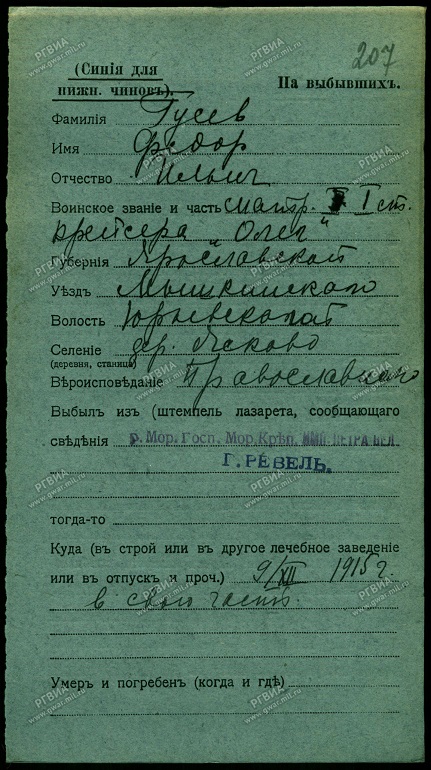 207
(Синія для
нижн. чиновъ).
На выбывшихъ.
Фамилія Гусев
Имя Федор
Отчество Ильич
Воинское званіе и часть матр. I ст.
крейсера "Олег"
Губернія Ярославской
Уѣздъ Мышкинскаго
Волость Юрьевской
Селеніе дер. Еськово
(деревня, станица)
Вѣроисповѣданіе Православнаго
Выбылъ изъ (штемпель лазарета, сообщающаго
свѣдѣнія Р. Мор. Госп. Мор. Крѣп. ИМП. ПЕТРА ВЕЛ.
Г. РЕВЕЛЬ.
тогда-то
Куда (въ строй или въ другое лечебное заведеніе
или въ отпускъ и проч.) 9/XII 1915 г.
в свою часть.
Умеръ и погребенъ (когда и гдѣ)
РГВИА
www.gwar.mil.ru